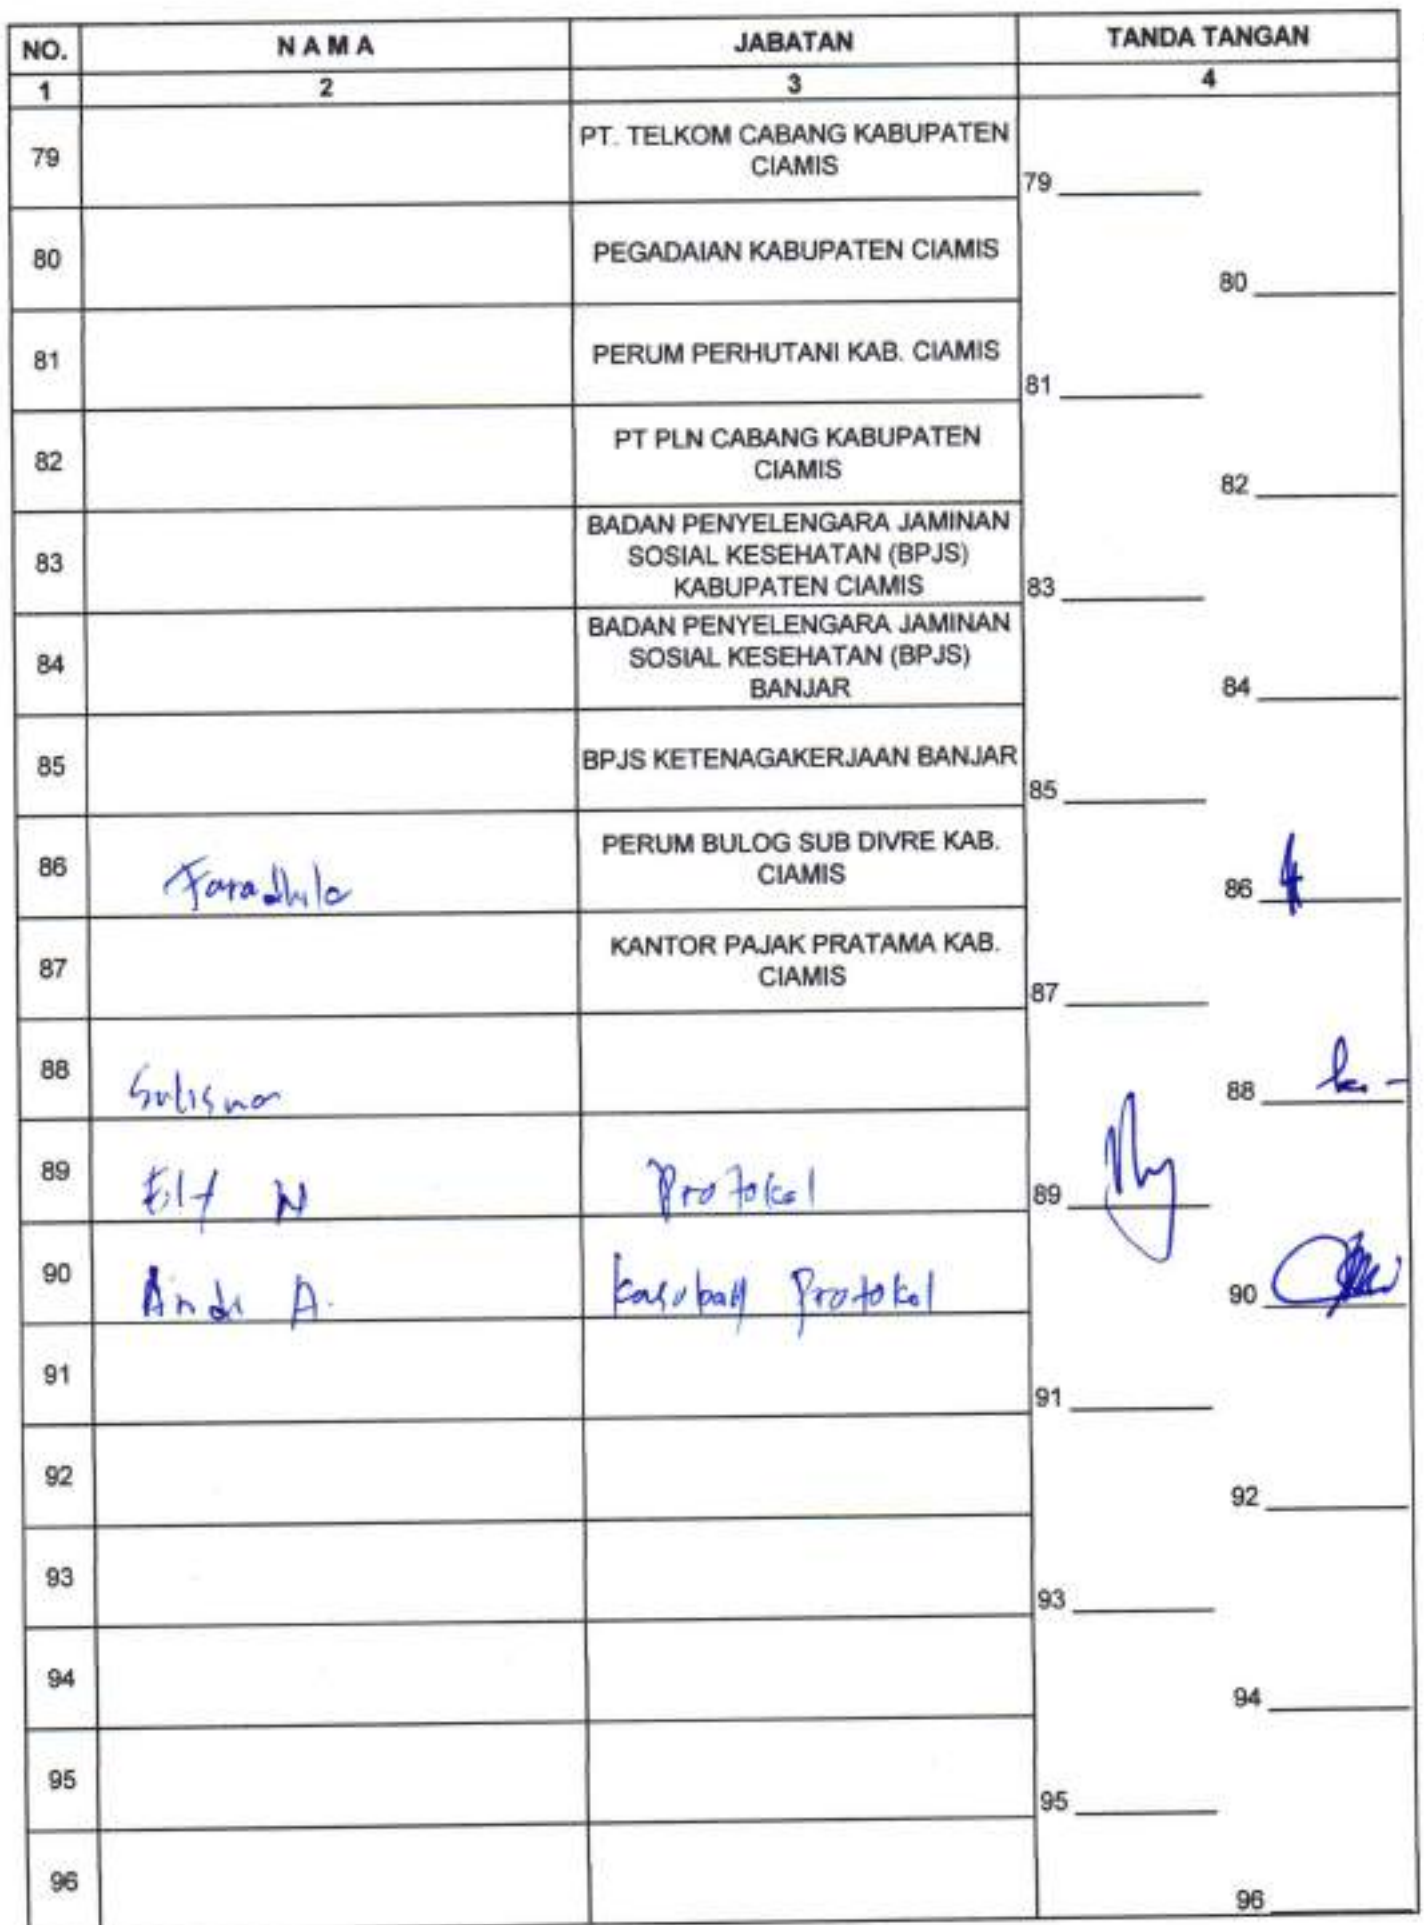 NO. N A M A JABATAN TANDA TANGAN
1 2 3 4
79 PT. TELKOM CABANG KABUPATEN
CIAMIS
79
80 PEGADAIAN KABUPATEN CIAMIS
80
81 PERUM PERHUTANI KAB. CIAMIS
81
82 PT PLN CABANG KABUPATEN
CIAMIS
82
83 BADAN PENYELENGARA JAMINAN
SOSIAL KESEHATAN (BPJS)
KABUPATEN CIAMIS
83
84 BADAN PENYELENGARA JAMINAN
SOSIAL KESEHATAN (BPJS)
BANJAR
84
85 BPJS KETENAGAKERJAAN BANJAR
85
86 Faradhila PERUM BULOG SUB DIVRE KAB.
CIAMIS
86
87 KANTOR PAJAK PRATAMA KAB.
CIAMIS
87
88 Sutisna
88
89 N Protokol
89
90 Andi A. Kasubag Protokol
90
91
91
92
92
93
93
94
94
95
95
96
96